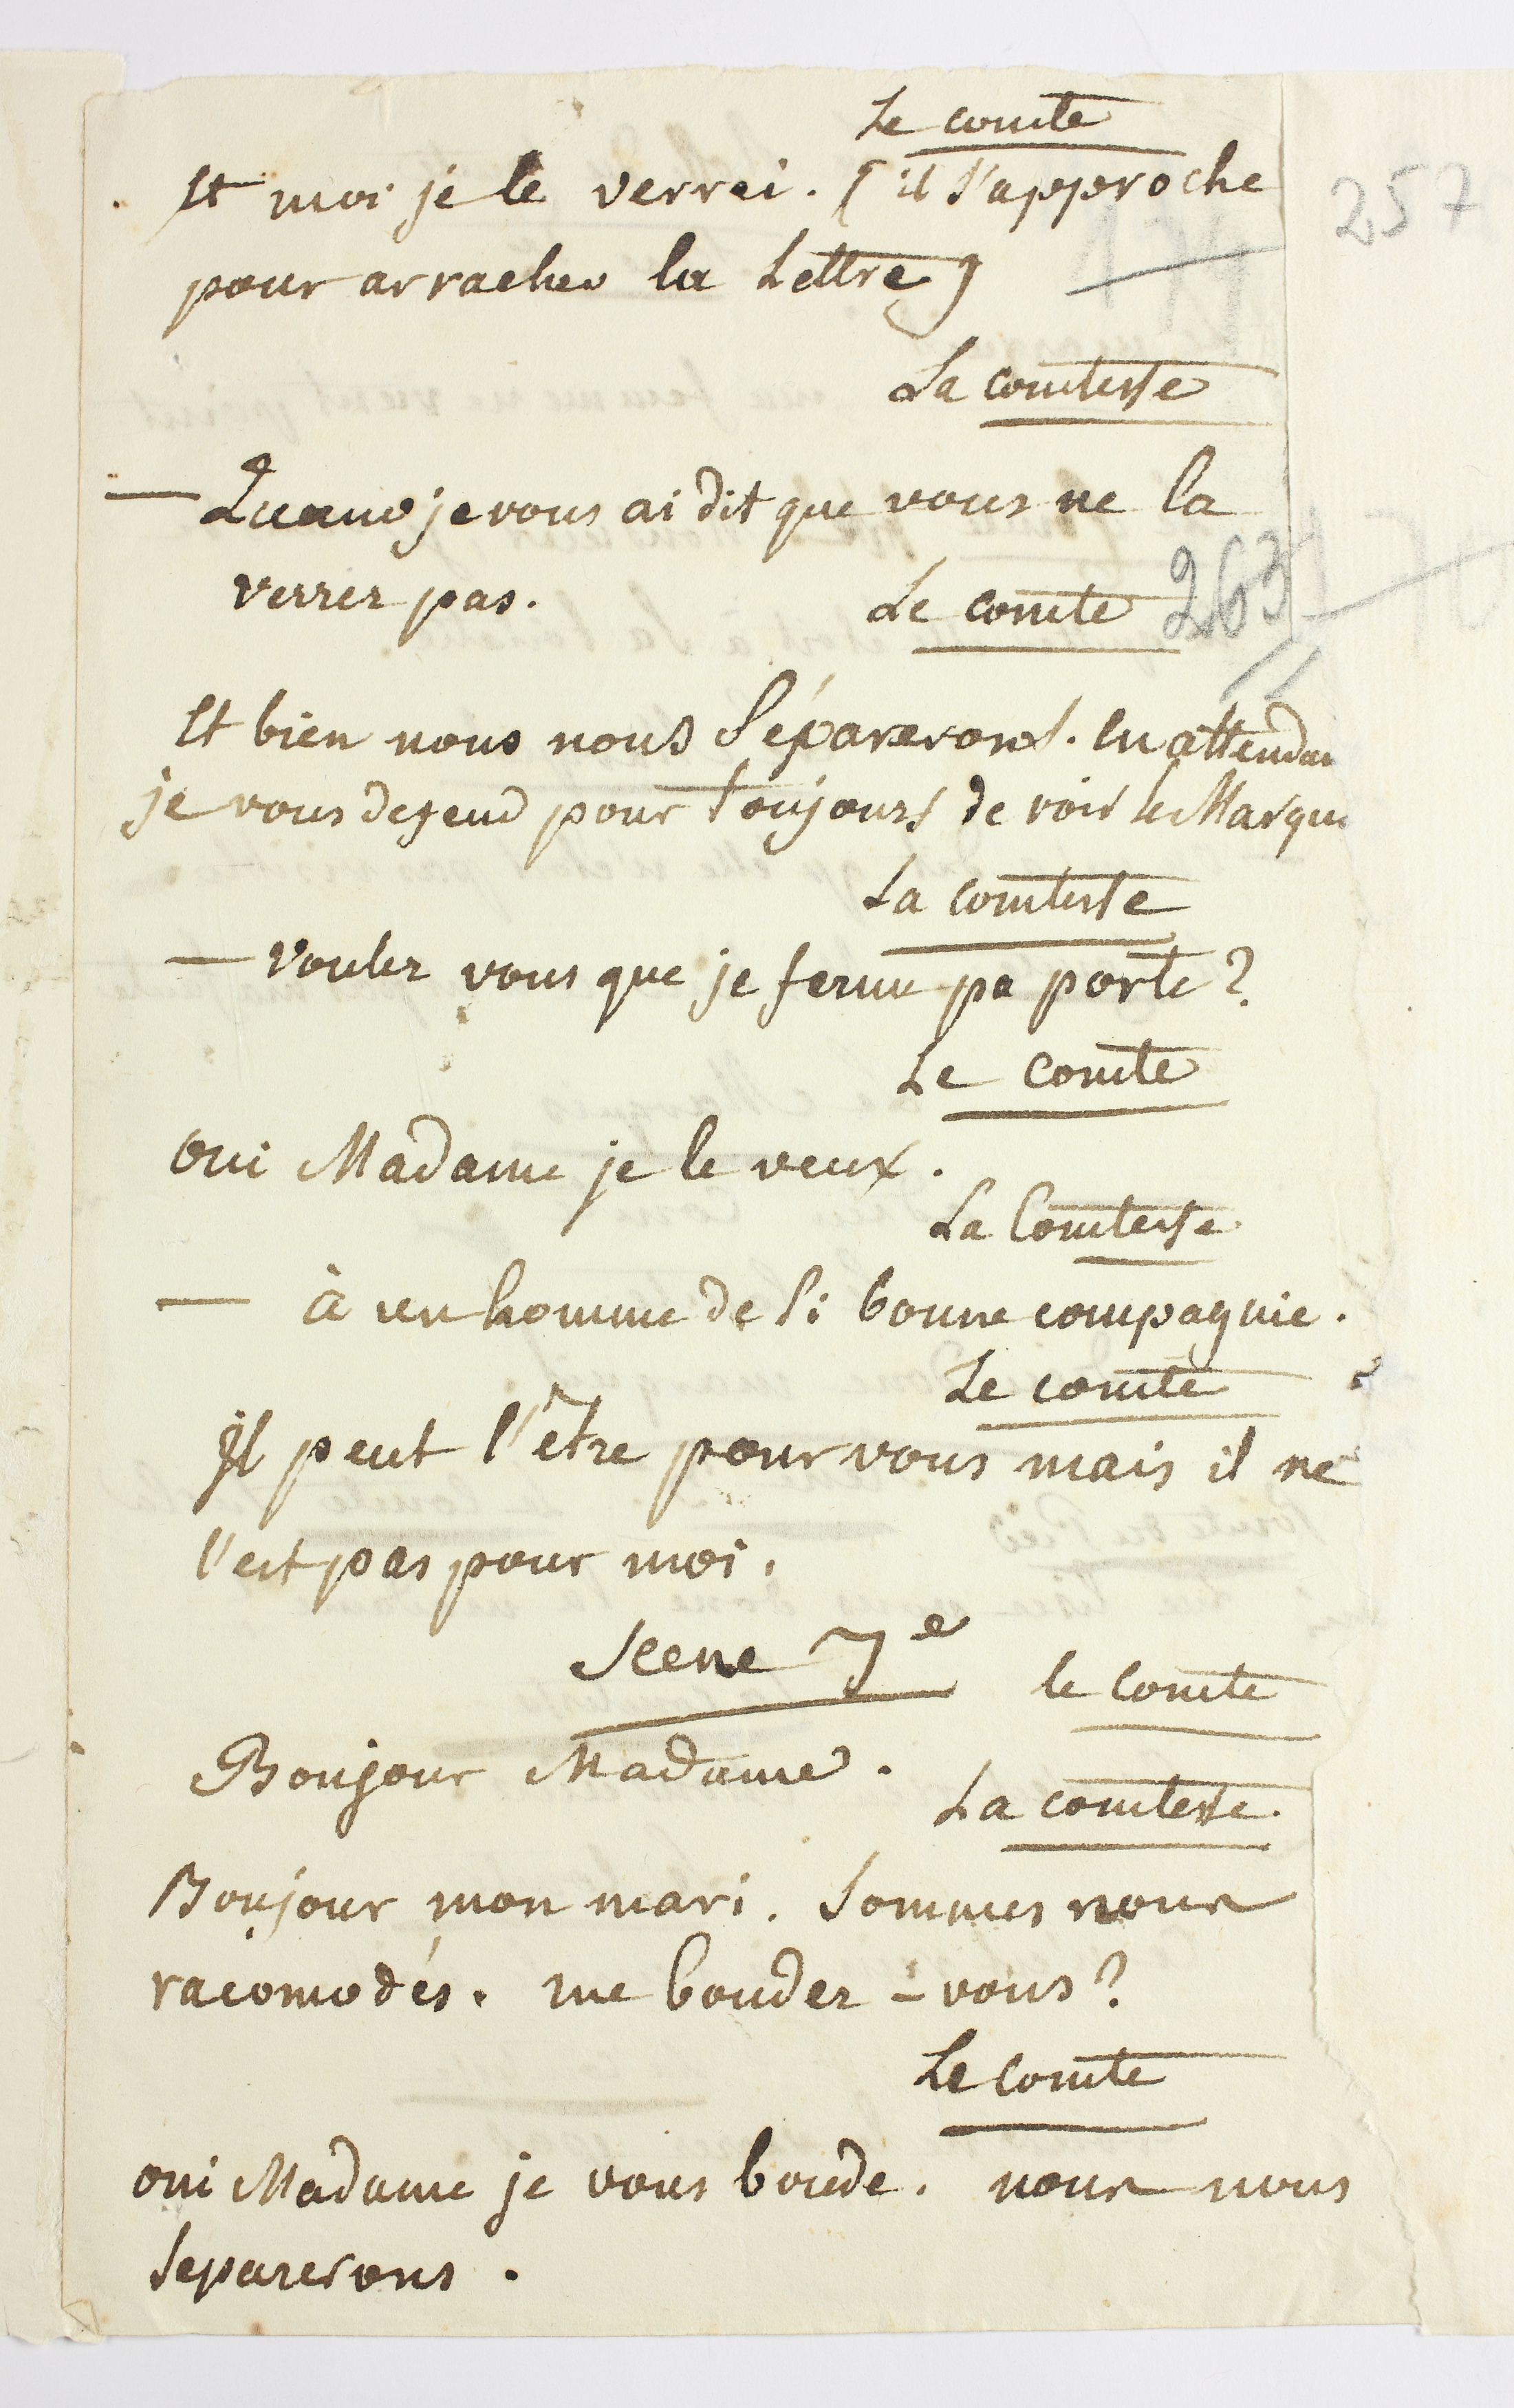 Le comte
Et moi je le verrai. (il s'approche
257
pour arracher la Lettre)
La comtesse
— Quand je vous ai dit que vous ne la
verrez pas.
Le comte
263
Et bien nous nous séparerons. en attendan
je vous defend pour toujours de voir le Marqui
La comtesse
— Voulez vous que je ferme pa porte?
Le comte
oui Madame je le veux.
La Comtesse
— à un homme de si bonne compagnie.
Le comte
Il peut l'être pour vous mais il ne
l'est pas pour moi.
Scene 7e
le Comte
Bonjour Madame.
La comtesse.
Bonjour mon mari. Sommes nous
racomodés. me boudez-vous?
Le Comte
oui Madame je vous boude. nous nous
separerons.